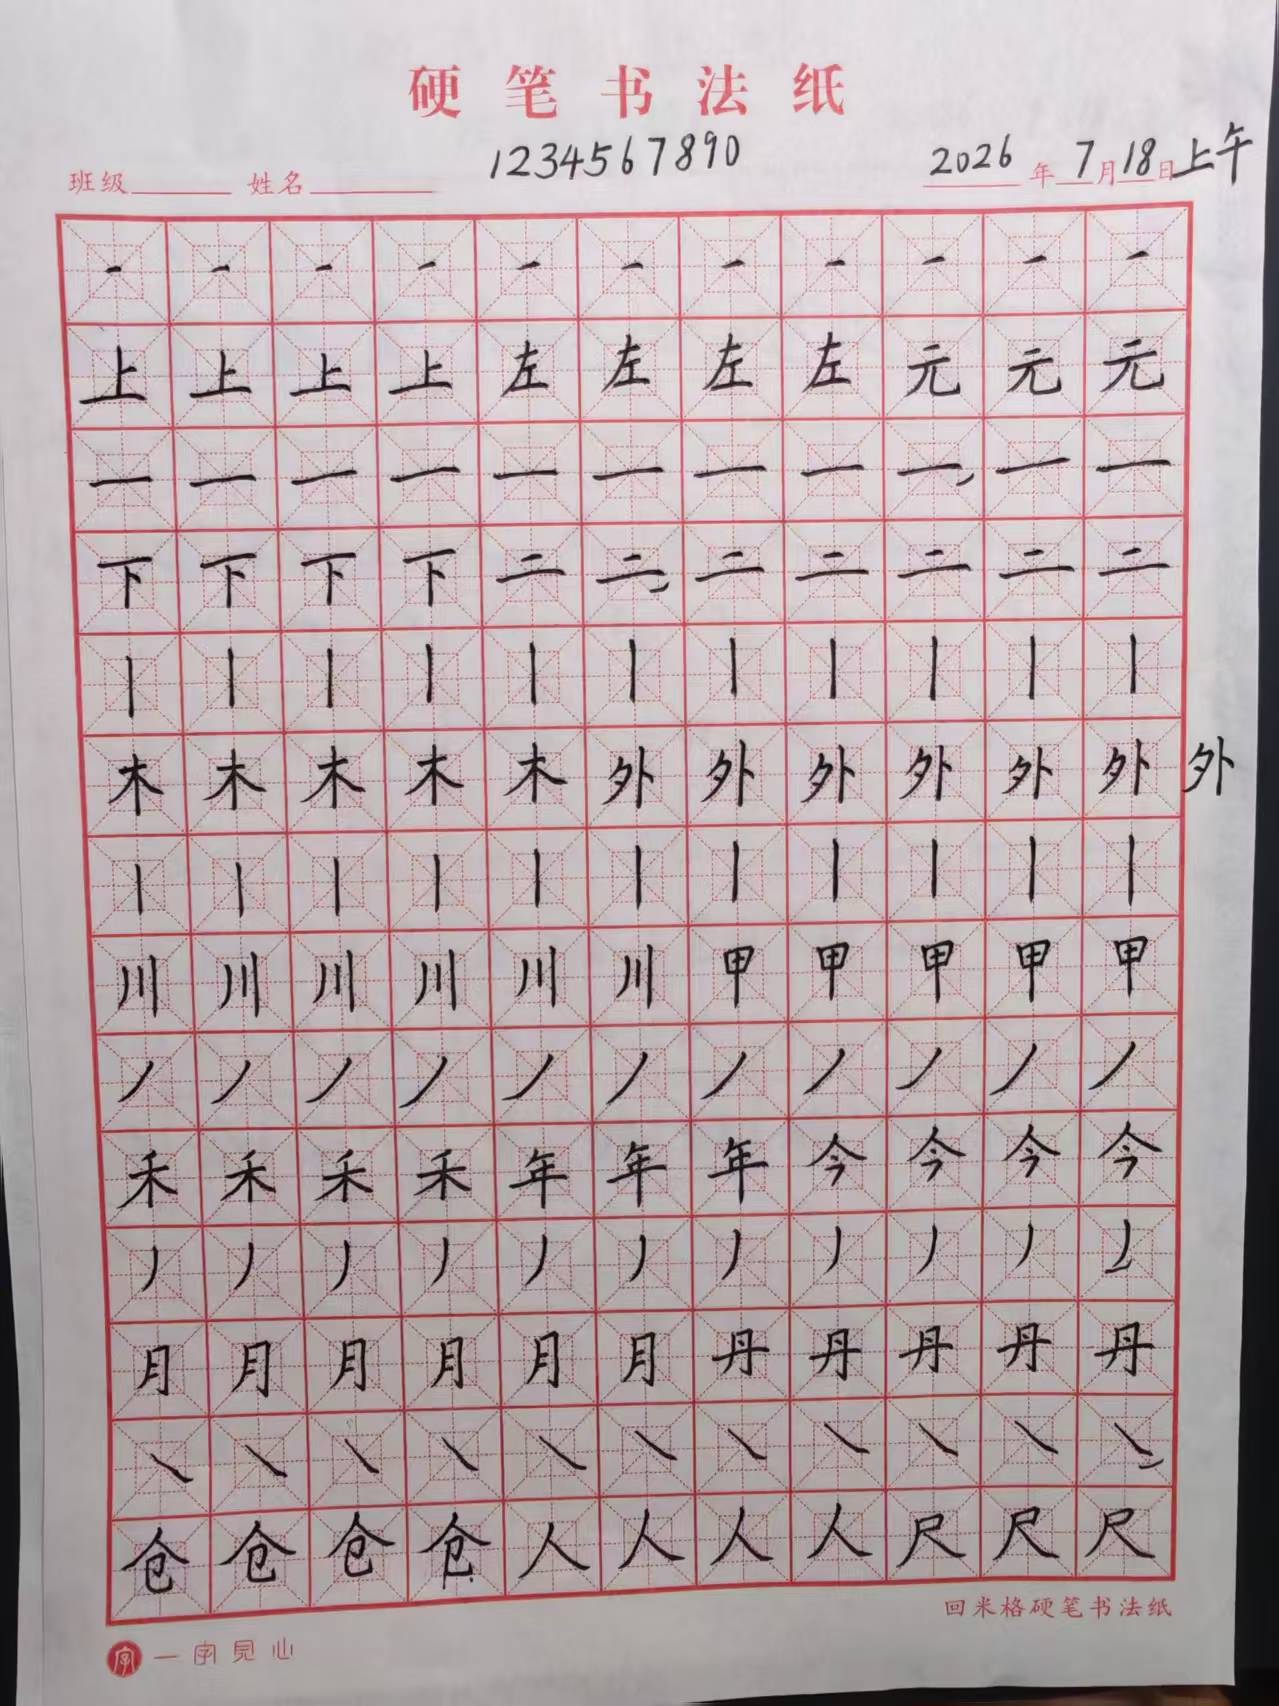 硬笔书法纸
1234567890
班级 姓名 2026年7月18日上午
一一一一一一一一一一一
上上上上左左左左元元元
一一一一一一一一一一一
下下下下二二二二二二二
丨丨丨丨丨丨丨丨丨丨丨
木木木木木外外外外外外外
丨丨丨丨丨丨丨丨丨丨丨
川川川川川川甲甲甲甲甲
丿丿丿丿丿丿丿丿丿丿丿
禾禾禾禾年年年今今今今
丿丿丿丿丿丿丿丿丿丿丿
月月月月月月丹丹丹丹丹
㇏㇏㇏㇏㇏㇏㇏㇏㇏㇏㇏
仓仓仓仓人人人人尺尺尺
回米格硬笔书法纸
字 一字見心